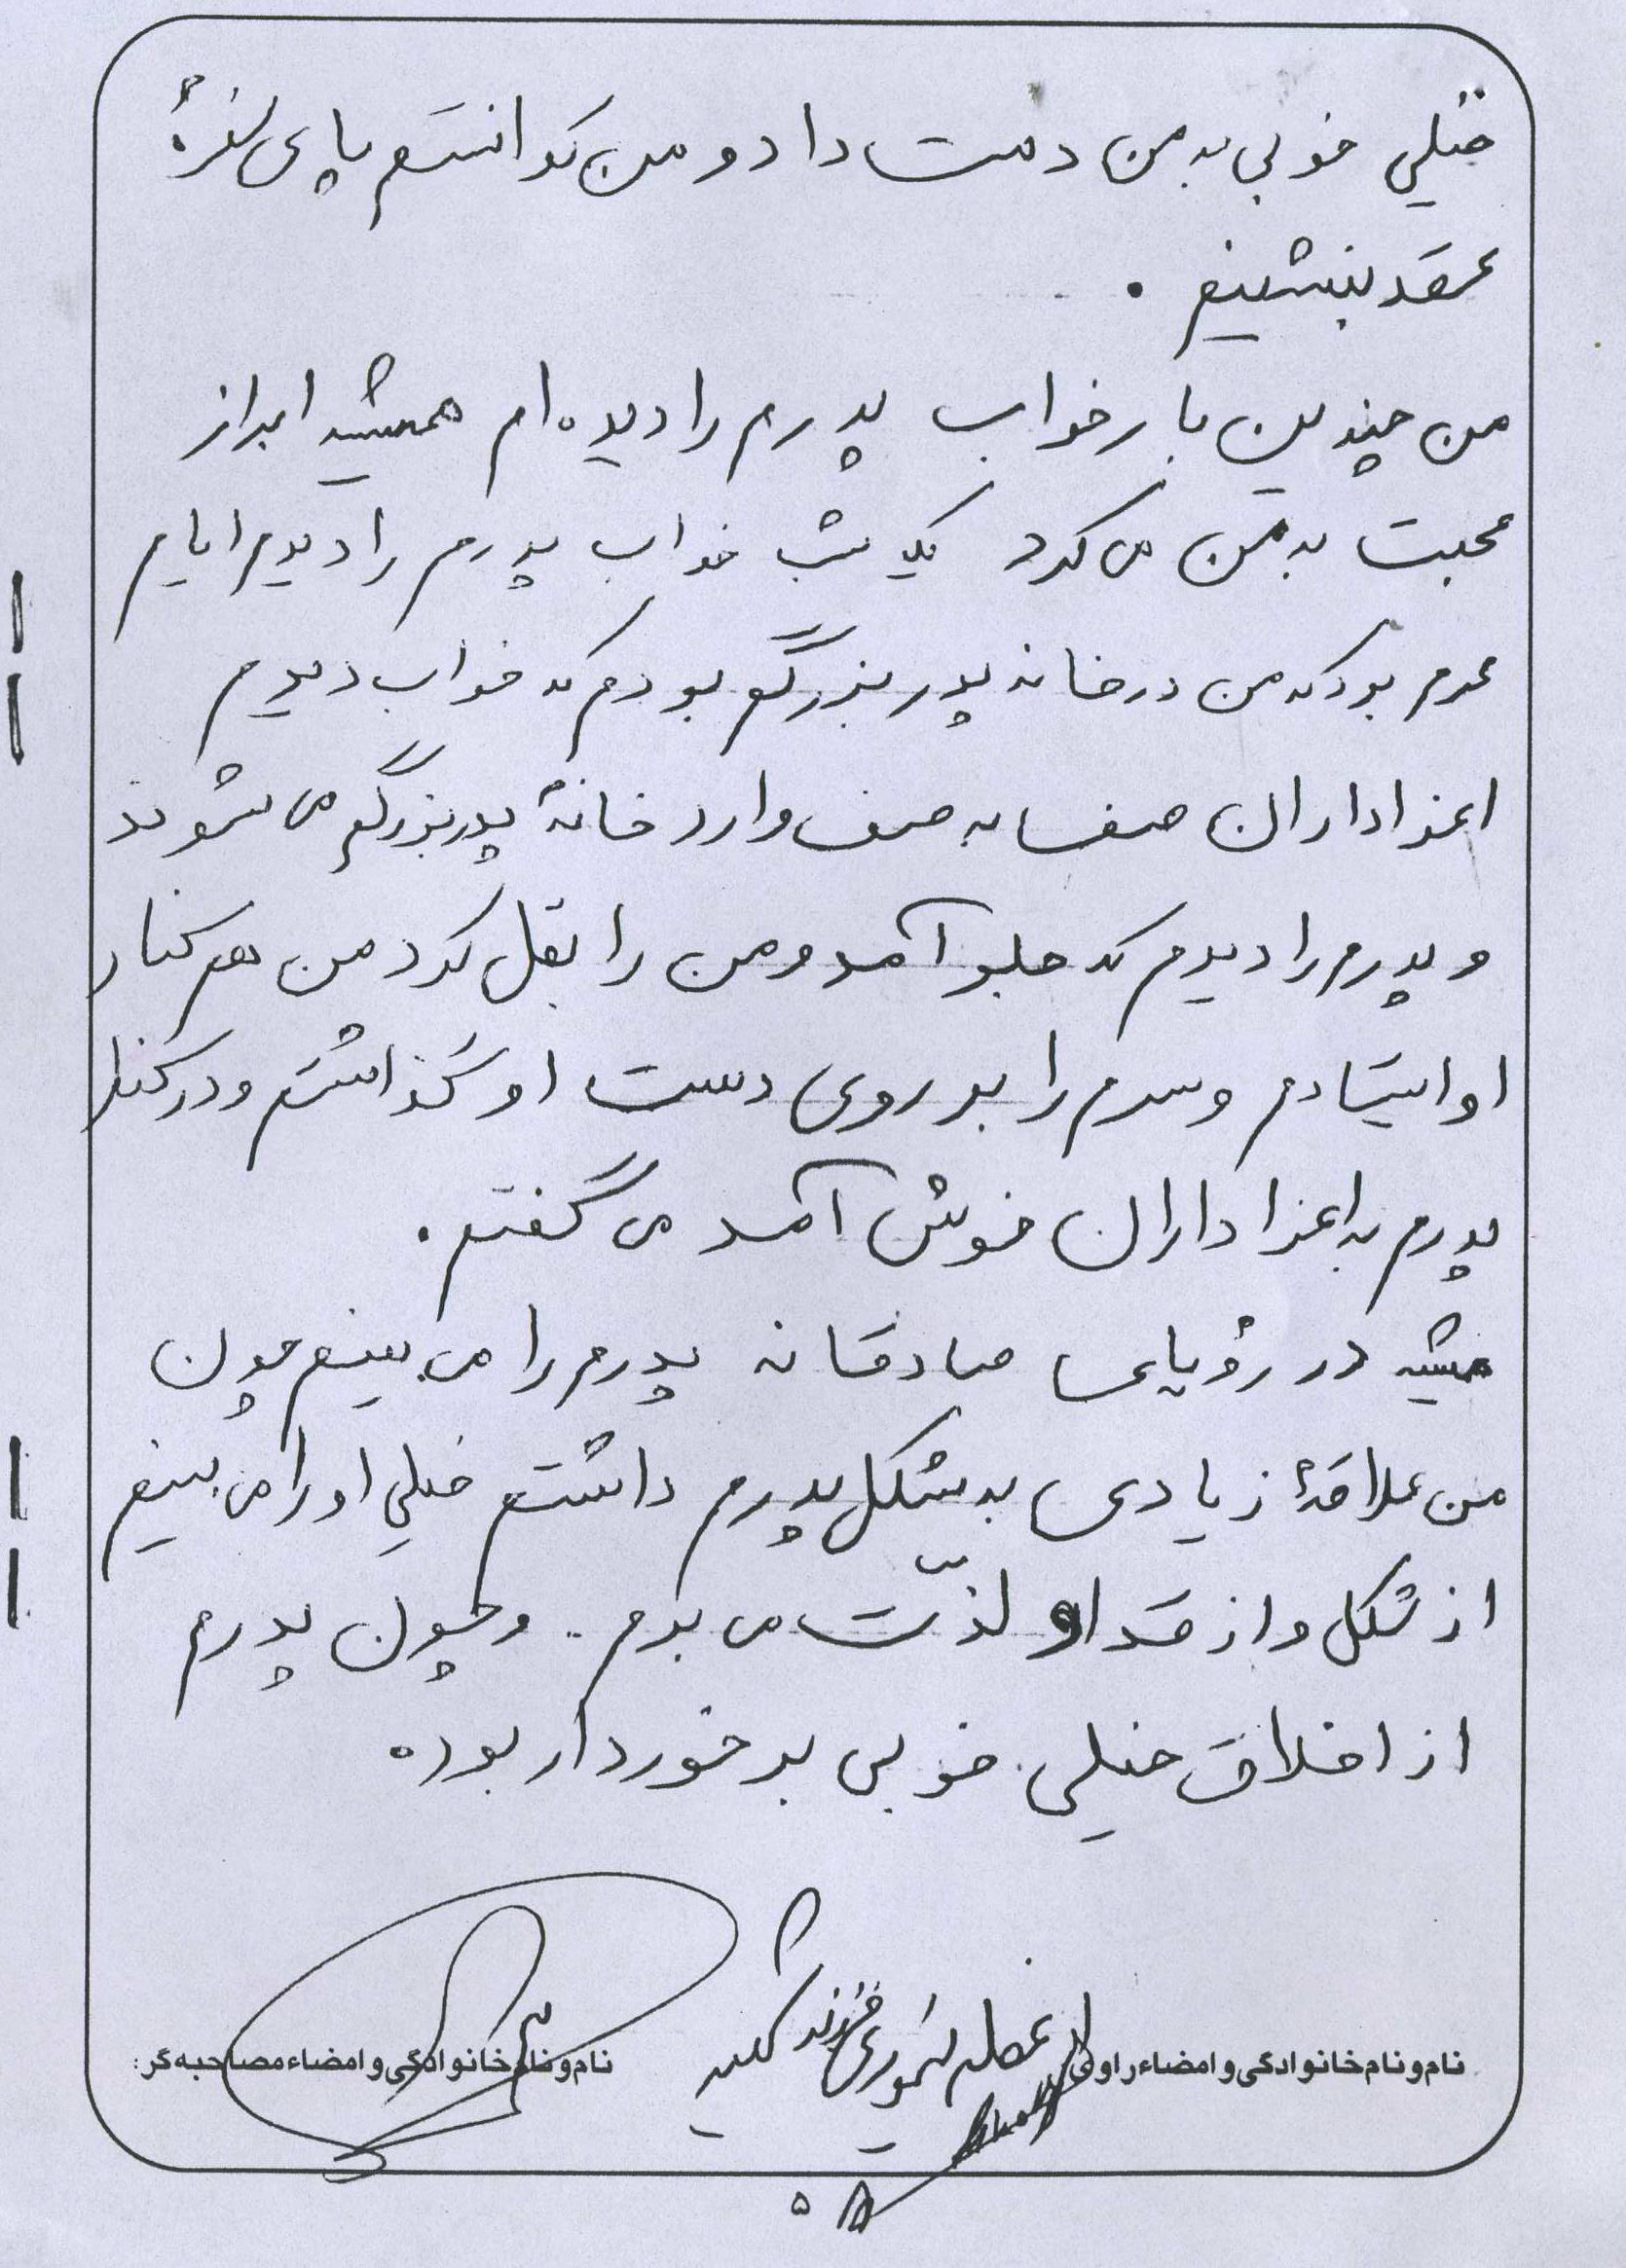 خیلی خوبی به من دست داد و من توانستم پای سفرهٔ
عقد بنشینم .
من چندین بار خواب پدرم را دیده ام همیشه ابراز
محبت به من می کرد یک شب خواب پدرم را دیدم ایام
محرم بود که من در خانه پدر بزرگم بودم که خواب دیدم
اعزاداران صف به صف وارد خانهٔ پدربزرگم می شوند
و پدرم را دیدم که جلو آمد و من را بغل کرد من هم کنار
او ایستادم و سرم را بر روی دست او گذاشتم و در کنار
پدرم به اعزاداران خوش آمد می گفتم .
همیشه در رؤیایی صادقانه پدرم را می بینم چون
من علاقهٔ زیادی به شکل پدرم داشتم خیلی او را می بینم
از شکل و از قد او لذّت می برم .. و چون پدرم
از اخلاق خیلی خوبی برخوردار بوده
نام و نام خانوادگی و امضاء راوی فرزند شهید
نام و نام خانوادگی و امضاء مصاحبه گر: